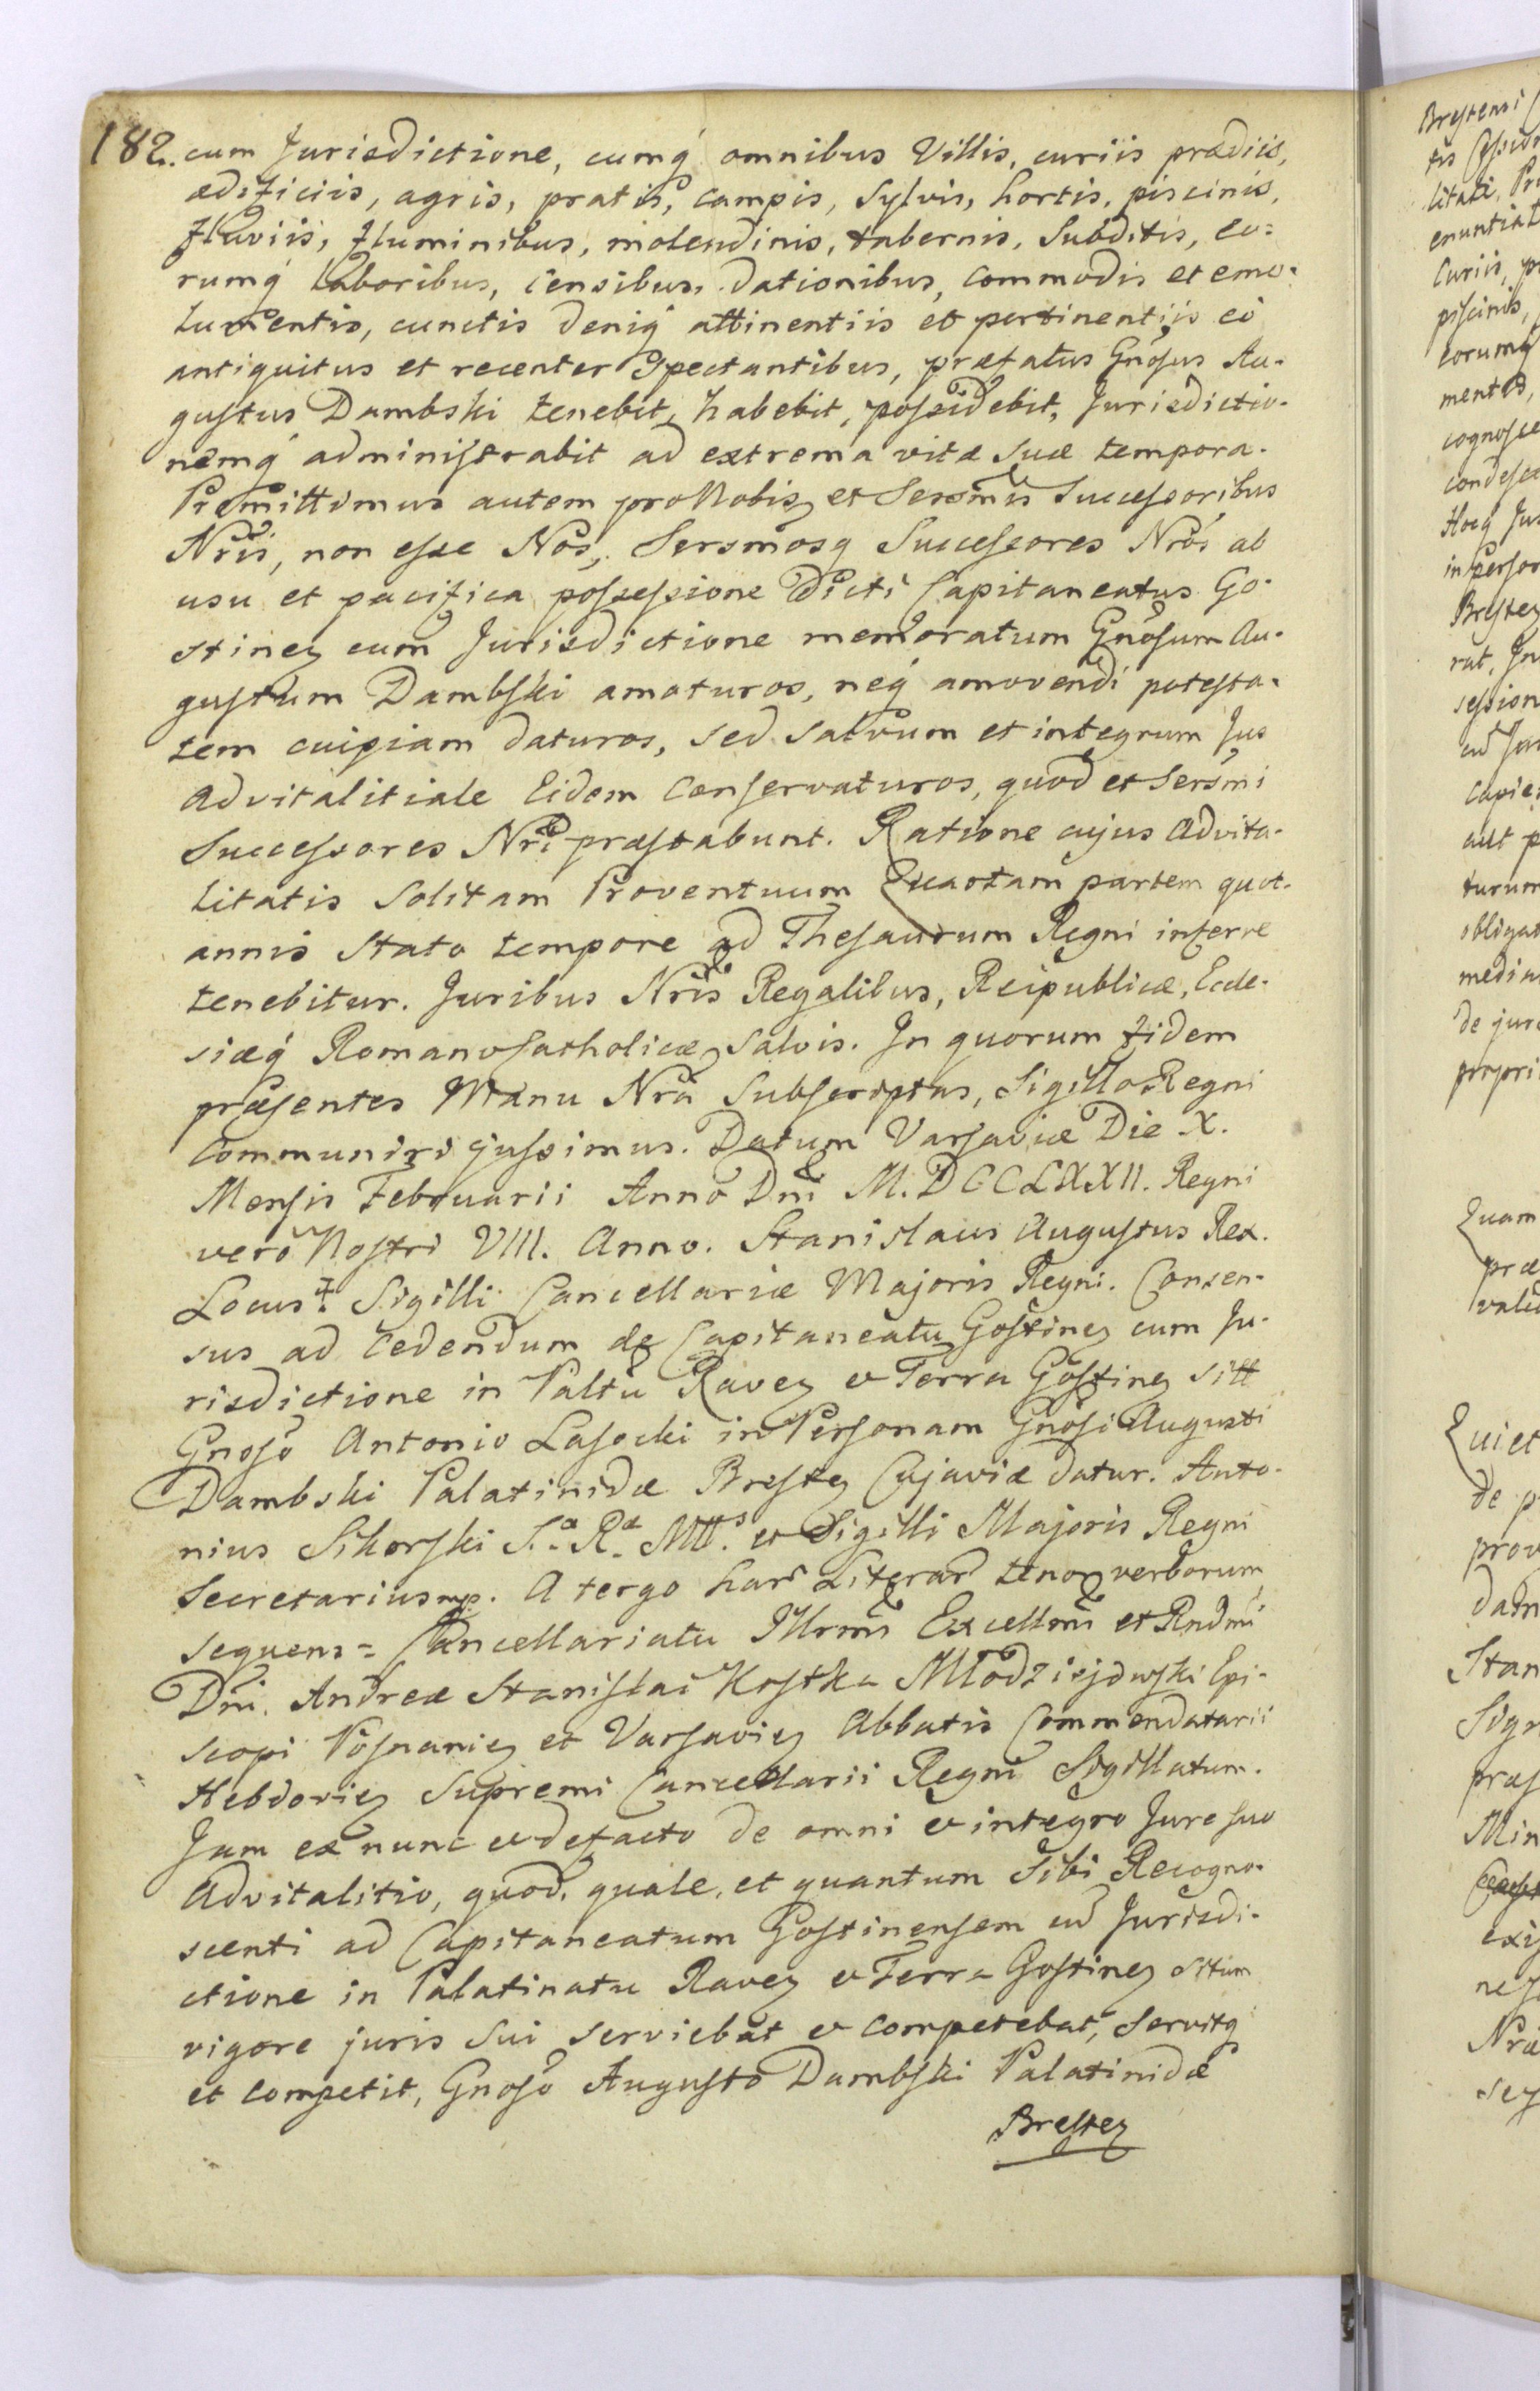 182. cum Jurisdictione, cumq́ omnibus Villis, curiis prædiis,
ædificiis, agris, pratis, campis, Sylvis, hortis, piscinis,
fluviis, fluminibus, molendinis, tabernis, Subditis, eo=
rumq́ Laboribus, censibus, dationibus, commodis et emo-
lumentis, cunctis deniq́ attinentiis et pertinentiis eò
antiquitus et recenter Spectantibus, præfatus Gnosus Au-
gustus Dambski tenebit, habebit, possidebit, Jurisdictio-
nemq́ administrabit ad extrema vitæ Suæ tempora.
Promittimus autem pro Nobis, et Sersmis Successoribus
Nris, non esse Nos, Sersmosq Successores Nros ab
usu et pacifica possessione Dicti Capitaneatus Go-
stinen cum Jurisdictione memoratum Gnosum Au-
gustum Dambski amoturos, neq́ amovendi potesta-
tem cuipiam daturos, sed Salvum et integrum Jus
Advitalitiale Eidem Conservaturos, quod et Sersmi
Successores Nri præstabunt. Ratione cujus Advita-
litatis Solitam Proventuum Quartam partem quot-
annis Stato tempore ad Thesaurum Regni inferre
tenebitur. Juribus Nris Regalibus, Reipublicæ, Eccle-
siæq́ Romano Catholicæ, Salvis. In quorum fidem
præsentes Manu Nrâ Subscriptas, Sigillo Regni
Communiri jussimus. Datum Varsaviæ Die X.
Mensis Februarii Anno Dni M.DCCLXXII. Regni
vero Nostri VIII. Anno. Stanislaus Augustus Rex.
Locus ‡ Sigilli Cancellariæ Majoris Regni. Consen-
sus ad Cedendum de Capitaneatu Gostinen cum Ju-
risdictione in Paltu Raven et Terra Gostinen sitt
Gnoso Antonio Lasocki in Personam Gnosi Augusti
Dambski Palatinidæ Bresten Cujaviæ datur. Anto-
nius Sikorski S.æ R.æ Mtt.s et Sigilli Majoris Regni
Secretarius mp. A tergo har Literar tenor verborum
sequens = Cancellariatu Illrmi Excellmi et Rndmi
Dni. Andreæ Stanislai Kostka Młodziejowski Epi-
scopi Posnanien et Varsavien Abbatis Commendatarii
Hebdovien Supremi Cancellarii Regni Sigillatum.
Jam ex nunc et de facto de omni et integro Jure suo
Advitalitio, quod, quale, et quantum Sibi Recogno-
scenti ad Capitaneatum Gostinensem cu Jurisdi-
ctione in Palatinatu Raven et Terra Gostinen situm
vigore juris Sui serviebat et competebat, Servitq
et competit, Gnoso Augusto Dambski Palatinidæ
Bresten
Brestensi
litati,
enuntiat
Curiis,
piscinis,
eorumq́
mentis,
Nræ